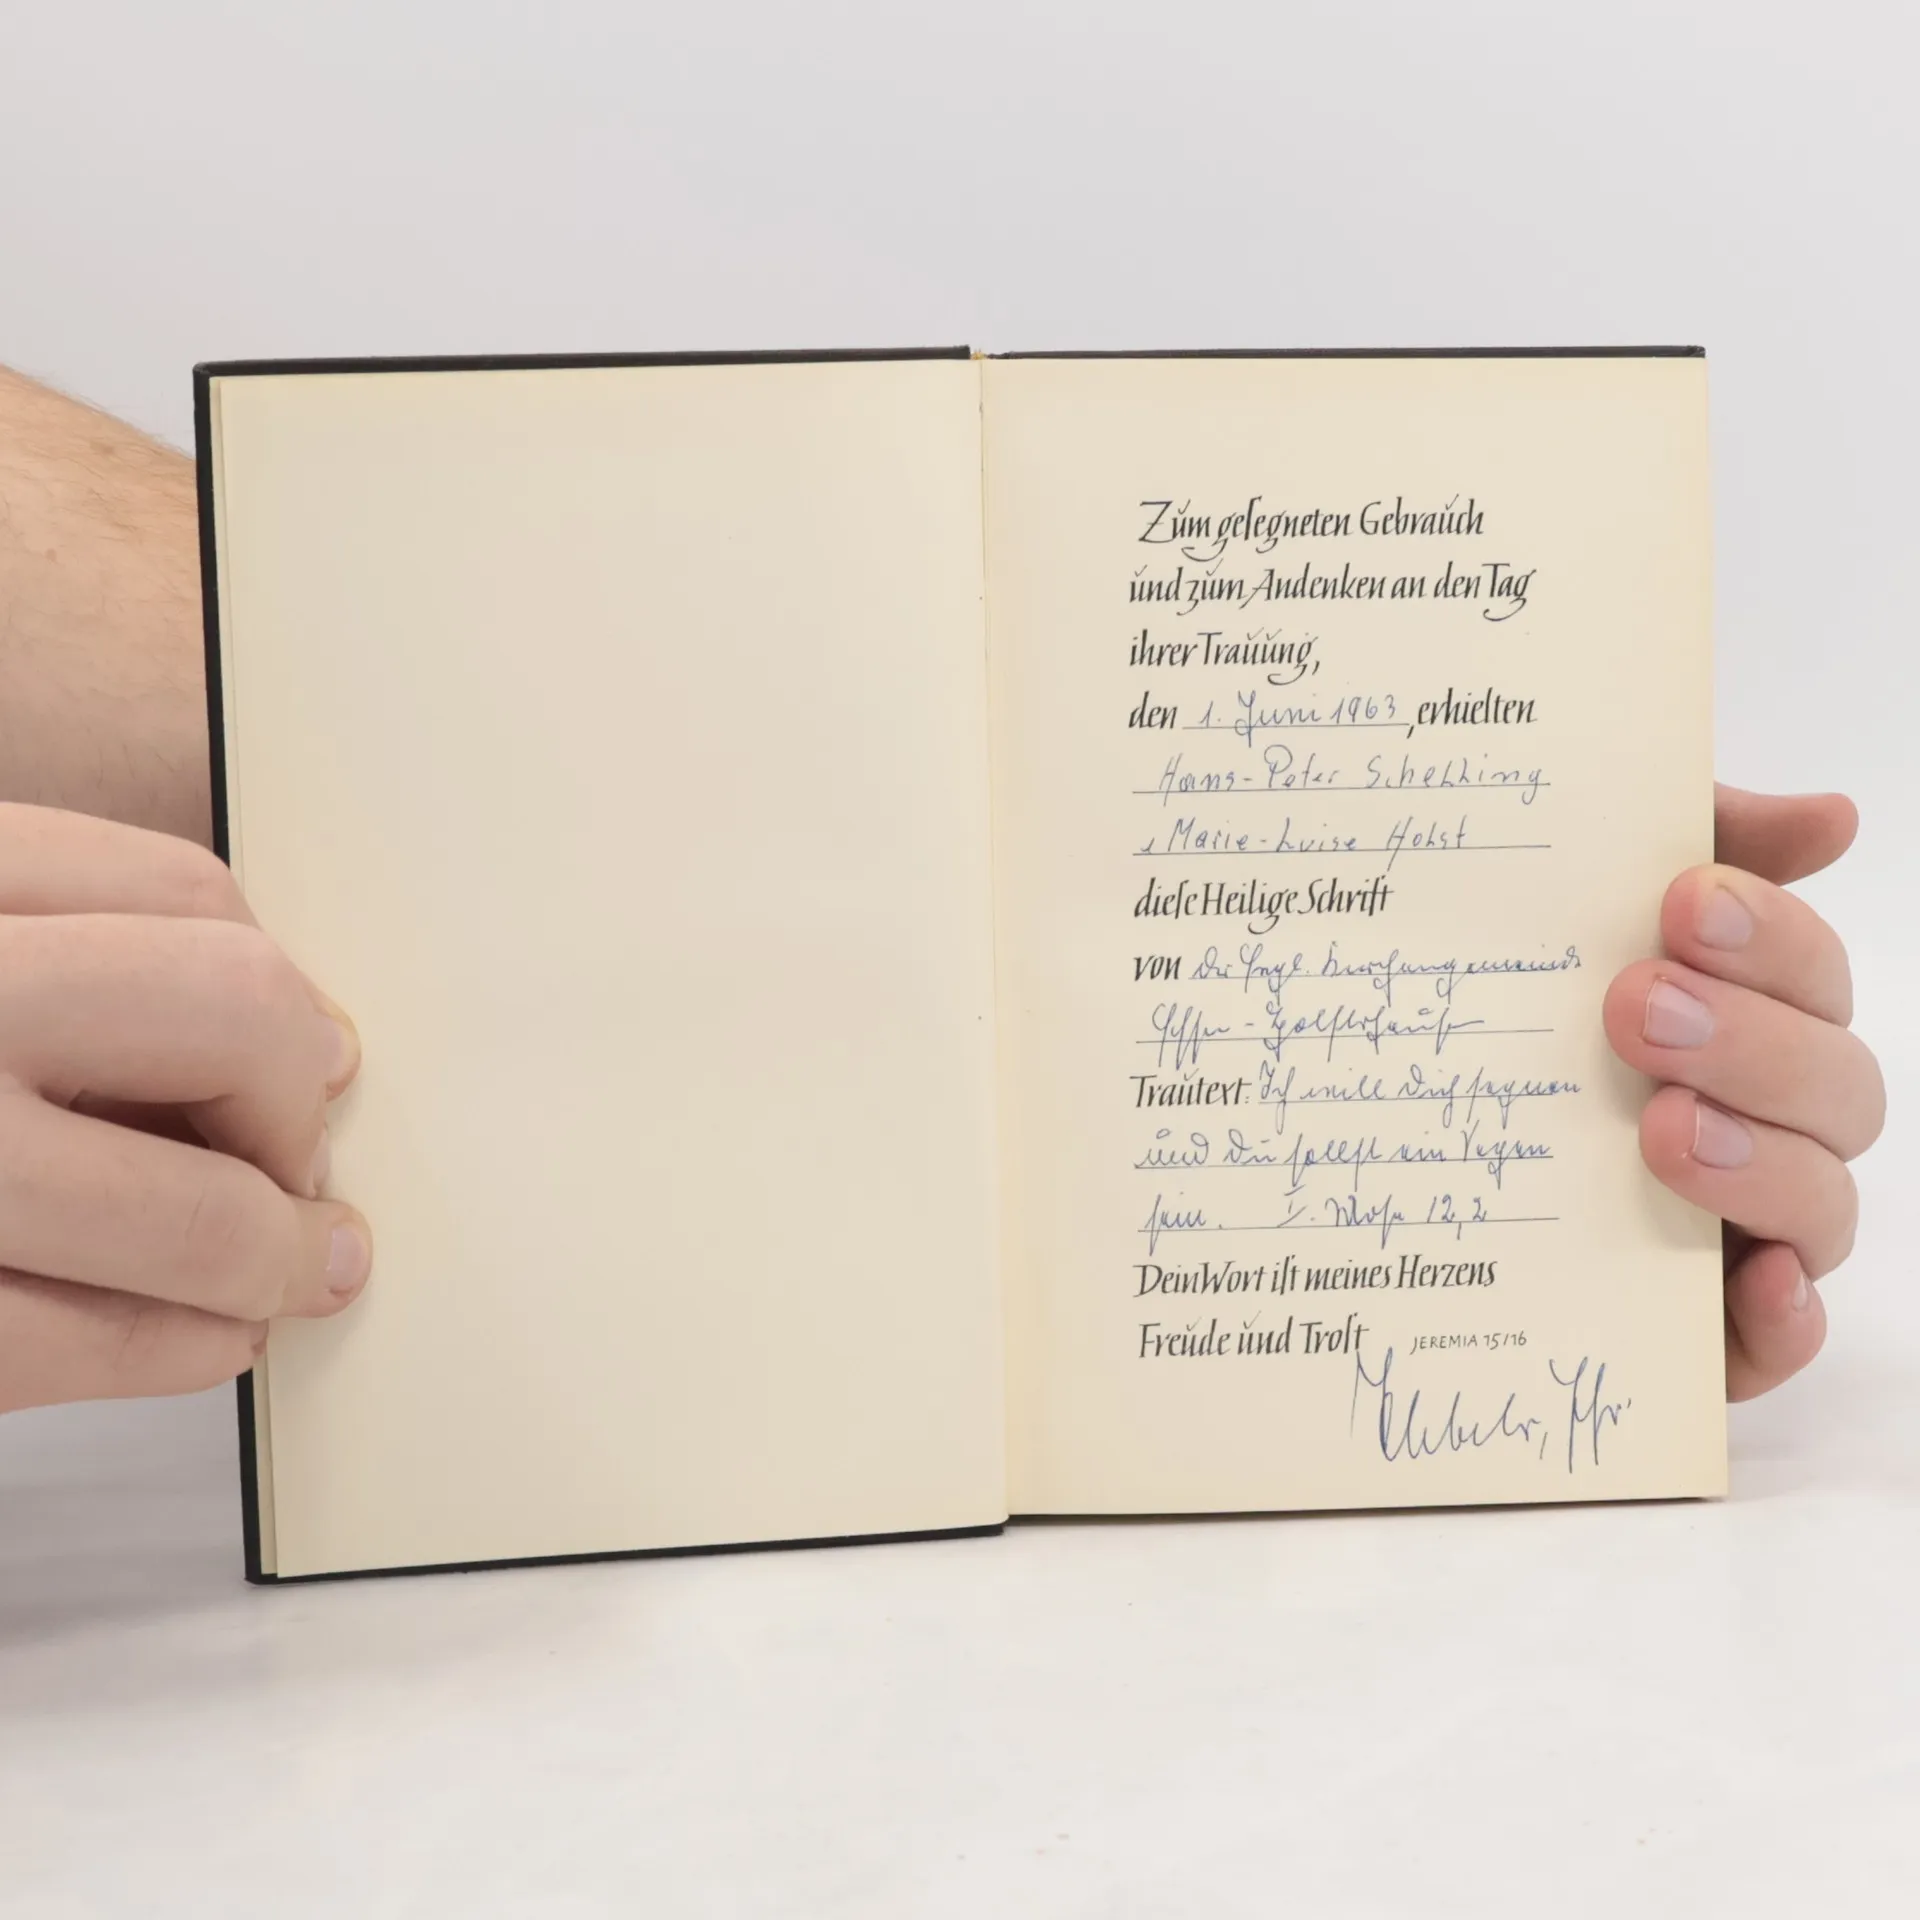 Zum gesegneten Gebrauch
und zum Andenken an den Tag
ihrer Trauung,
den 1. Juni 1963, erhielten
Hans-Peter Schelling
Marie-Luise Holst
diese Heilige Schrift
von der Evgl. Kirchengemeinde
Essen-Holsterhausen
Trautext: Ich will Dich segnen
und Du sollst ein Segen
sein. I. Mose 12,2
Dein Wort ist meines Herzens
Freude und Trost JEREMIA 15/16
Pfr.